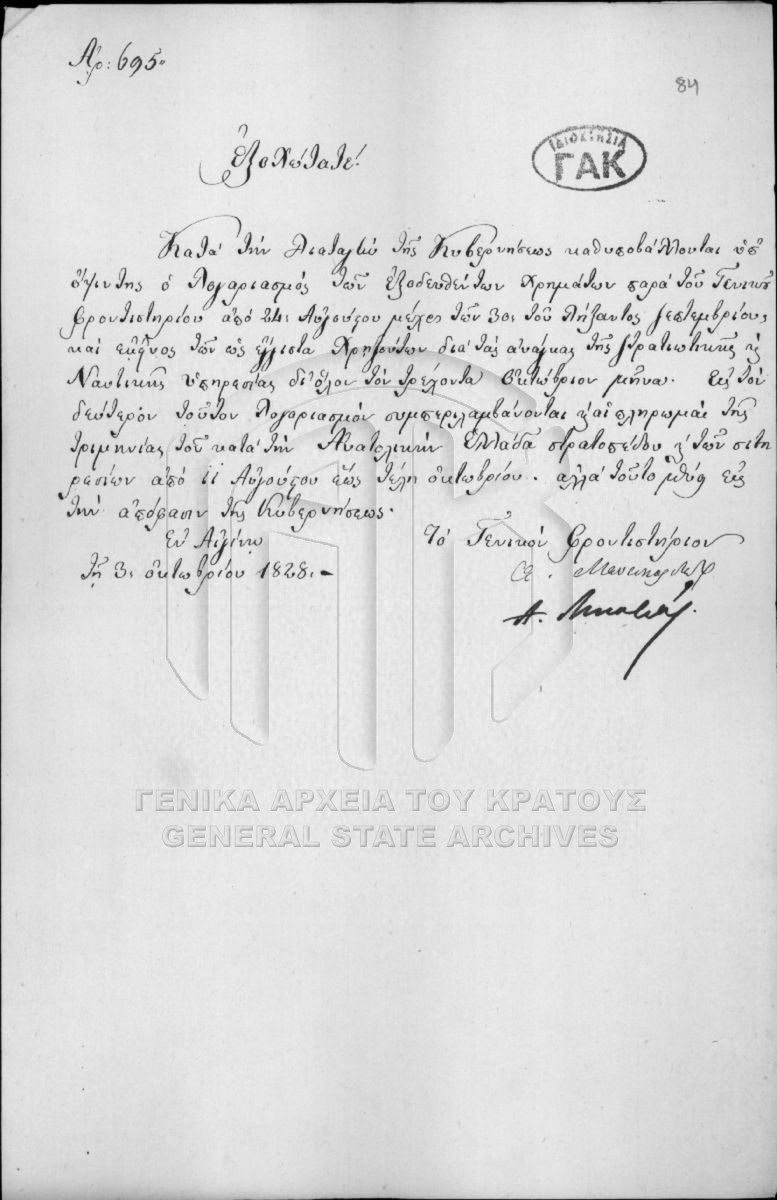 Αρ: 695.
84
Ἐξοχώτατε!
ΙΔΙΟΚΤΗΣΙΑ
ΓΑΚ
Κατὰ τὴν διαταγὴν τῆς Κυβερνήσεως καθυποβάλλονται ὑπ'
ὄψιν της ὁ Λογαριασμὸς τῶν ἐξοδευθέντων Χρημάτων παρὰ τοῦ Γενικοῦ
Φροντιστηρίου ἀπὸ 24: Αὐγούστου μέχρι τῶν 30: τοῦ λήξαντος Σεπτεμβρίου,
καὶ ἐκεῖνος τῶν ὡς ἔγγιστα Χρησίμων διὰ τὰς ἀνάγκας τῆς Στρατιωτικῆς κ
Ναυτικῆς ὑπηρεσίας δι' ὅλον τὸν τρέχοντα Ὀκτώβριον μῆνα. Εἰς τὸν
δεύτερον τοῦτον Λογαριασμὸν συμπεριλαμβάνονται καὶ αἱ πληρωμαὶ τῆς
τριμηνίας τοῦ κατὰ τὴν Ἀνατολικὴν Ἑλλάδα στρατοπέδου κ τῶν σιτη
ρεσίων ἀπὸ 11 Αὐγούστου ἕως τέλη ὀκτωβρίου. ἀλλὰ τοῦτο εἰς
τὴν ἀπόφασιν τῆς Κυβερνήσεως.
Ἐν Αἰγίνῃ
Τὸ Γενικὸν Φροντιστήριον
τῇ 3: ὀκτωβρίου 1828.-
Α.
ΓΕΝΙΚΑ ΑΡΧΕΙΑ ΤΟΥ ΚΡΑΤΟΥΣ
GENERAL STATE ARCHIVES